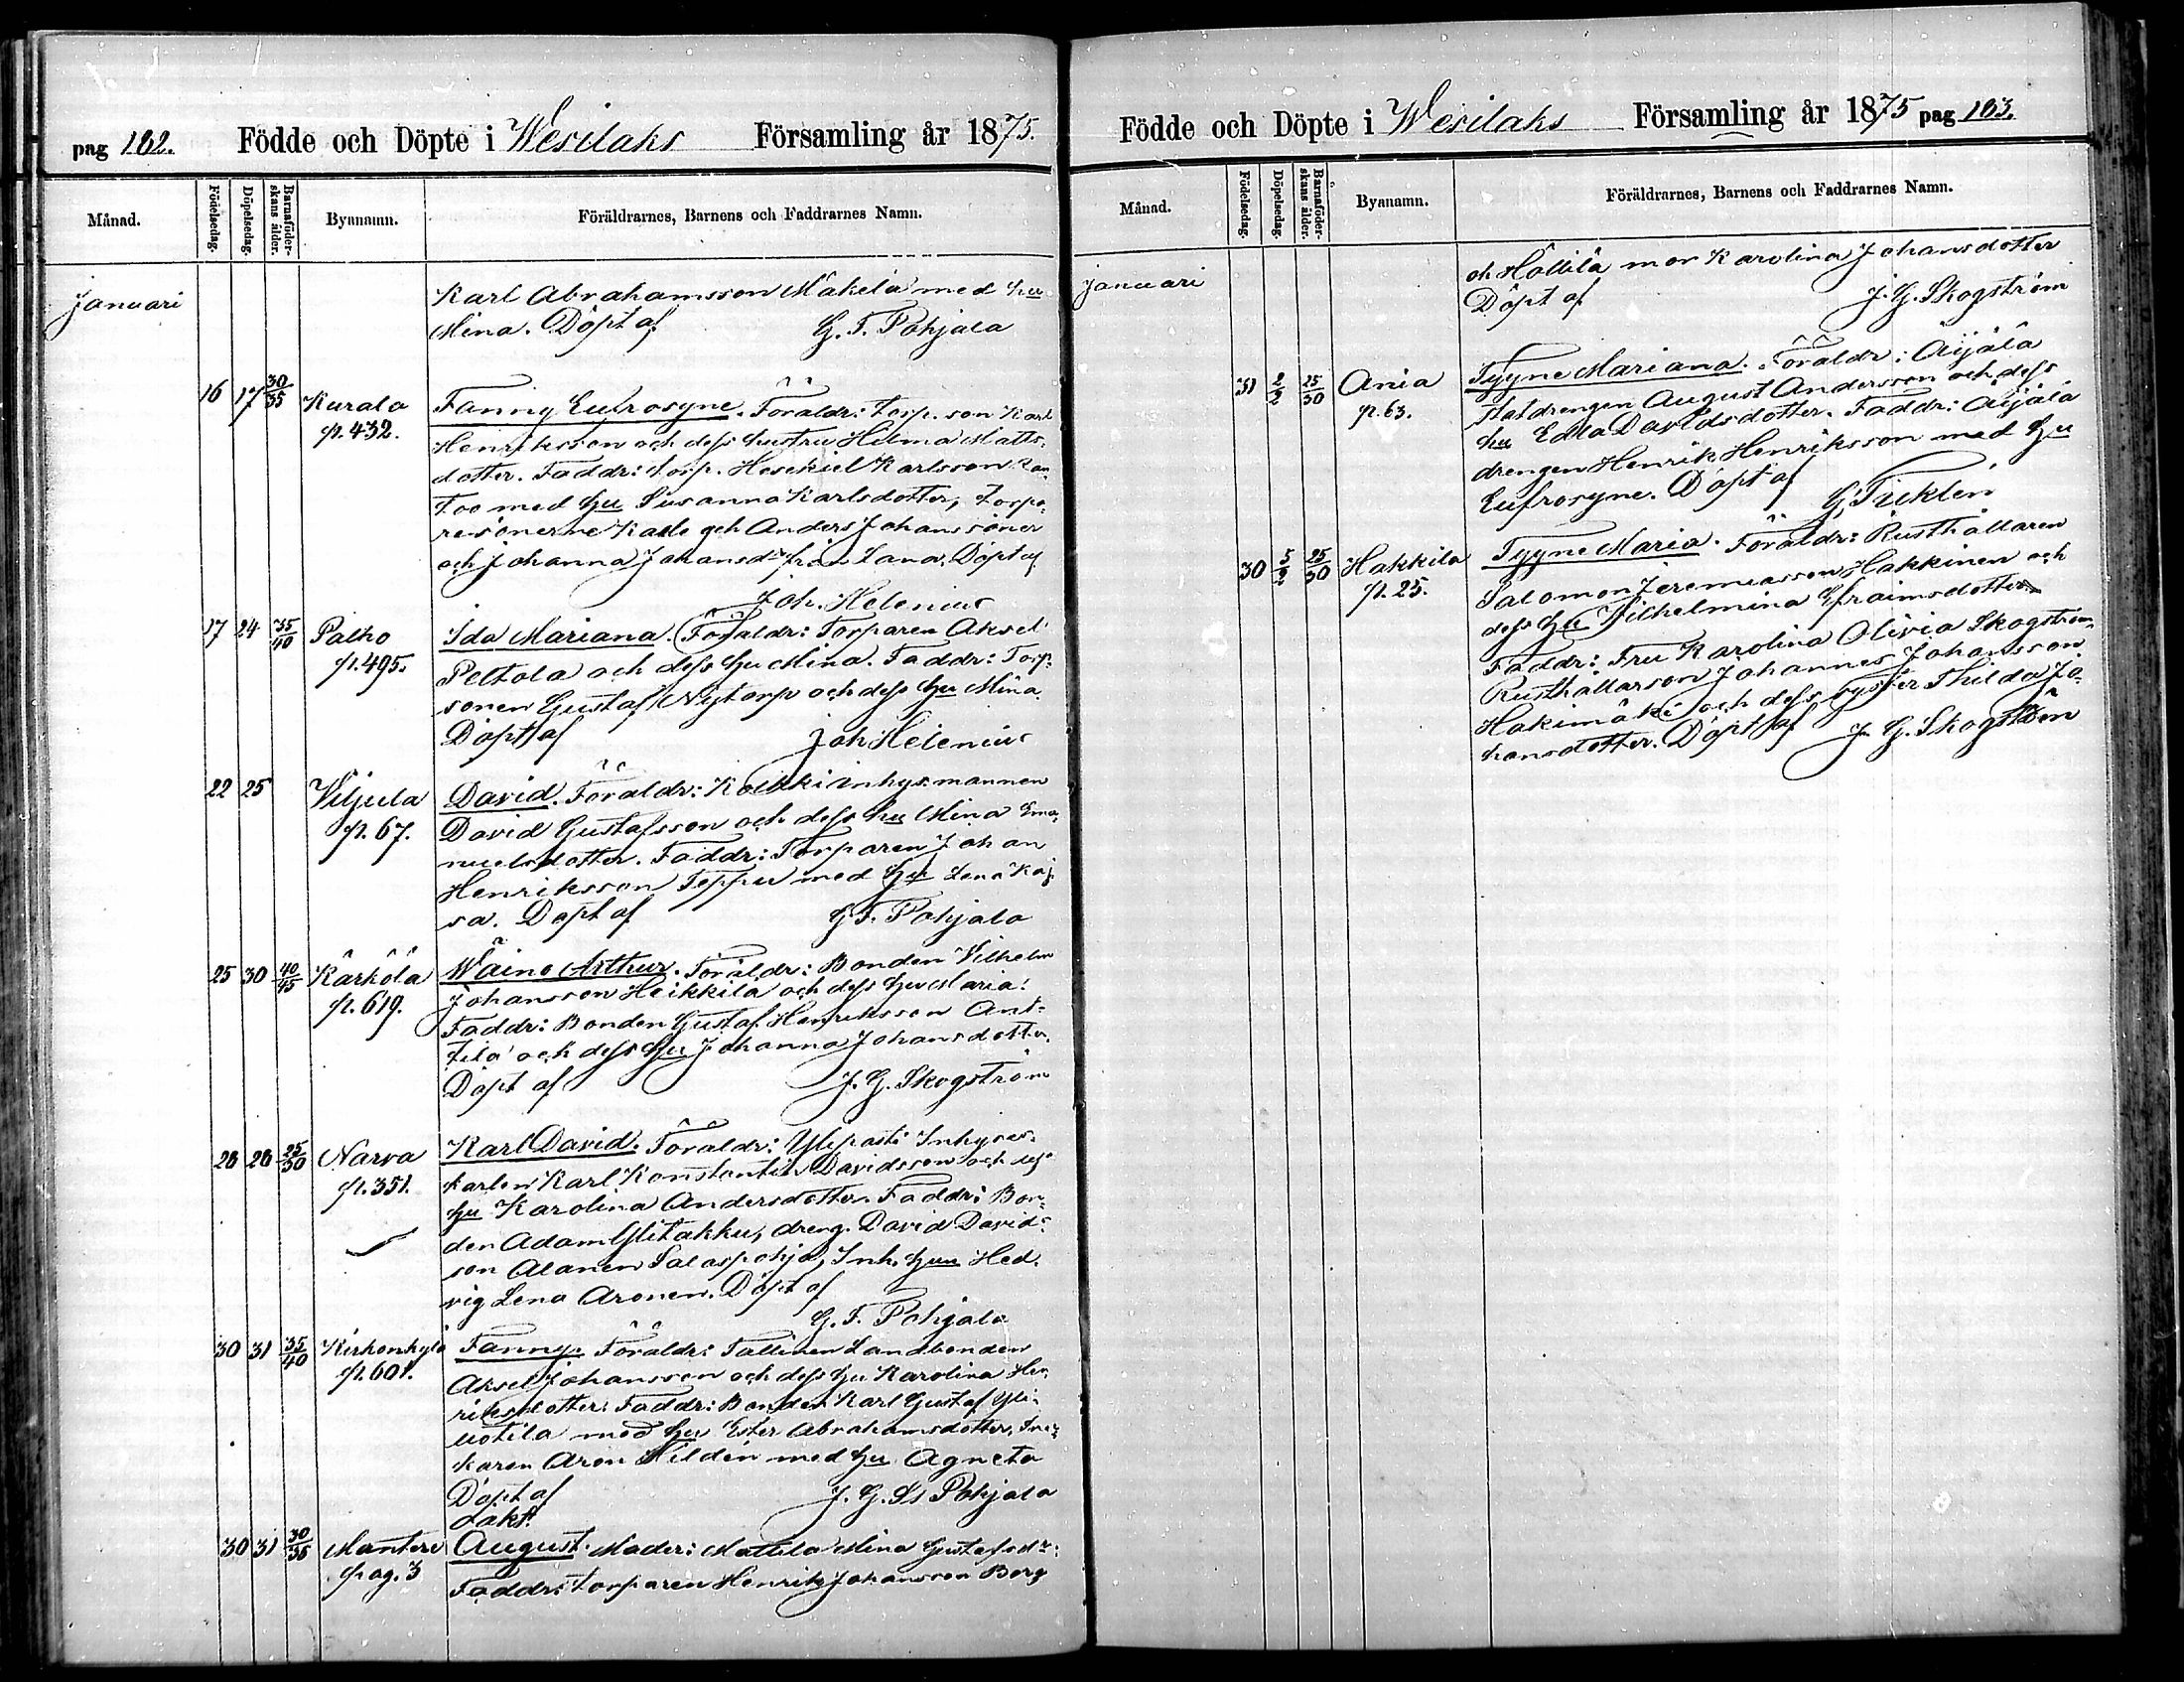 pag 162. Födde och Döpte i Wesilaks Församling år 1875.
Månad. Födelsedag. Döpelsedag. Barnaföderskans ålder. Bynamn. Föräldrarnes, Barnens och Faddrarnes Namn.
Januari Karl Abrahamsson Mäkelä med hu
Mina. Döpt af G. F. Pohjala
16 17 30/35 Kurala Fanny Eufrosyne. Föräldr: Torp. son Karl
p. 432. Henriksson och dess hustru Hilma Matts-
dotter. Faddr: torp. Hesekiel Karlsson
med hu Susanna Karlsdotter, torpa-
resönerne Kalle och Anders Johanssöner
och Johanna Johansdr från Lana. Döpt af
Joh. Helenius
17 24 35/40 Palho Ida Mariana. Föräldr: Torparen Aksel
p. 495. Peltola och dess hu Mina. Faddr: Torp.
sonen Gustaf Nytorp och dess hu Mina.
Döpt af Joh Helenius
22 25 Viljula David. Föräldr: Kolkki inhys.mannen
p. 67. David Gustafsson och dess hu Mina Ema-
nuelsdotter. Faddr: Torparen Johan
Henriksson Teppu med hu Lena Kaj-
sa. Döpt af G F. Pohjala
25 30 40/45 Kärkölä Wäinö Arthur. Föräldr: Bonden Vilhelm
p. 619. Johansson Heikkilä och dess hu Maria.
Faddr: Bonden Gustaf Henriksson Ant-
tila och dess hu Johanna Johansdotter.
Döpt af J. G. Skogström
26 26 25/30 Narva Karl David. Föräldr: Ylipasti Inhyses-
p. 351. karlen Karl Konstantin Davidsson och
hu Karolina Andersdotter. Faddr: Bon-
den Adam Ylitakku, dreng. David David-
son Alanen Salaspohja, Inh. hun Hed-
vig Lena Aronen. Döpt af
G. F. Pohjala
30 31 35/40 Kirkonkylä Fanny. Föräldr: Tallinen Landbonden
p. 601. Aksel Johansson och dess hu Karolina Hen-
riksdotter. Faddr: Bonden Karl Gustaf Yli-
uotila med hu Ester Abrahamsdotter,
karen Aron Hildén med hu Agneta
Döpt af J. G. Pohjala
oäkt.
30 31 30/35 Mantere August. Moder: Mattila Mina Gustafsdr:
pag. 3 Faddr: Torparen Henrik Johansson Borg
Födde och Döpte i Wesilaks Församling år 1875 pag 163.
Månad. Födelsedag. Döpelsedag. Barnaföderskans ålder. Bynamn. Föräldrarnes, Barnens och Faddrarnes Namn.
Januari och mor Karolina Johansdotter
Döpt af J. G. Skogström
31 2/2 25/30 Ania Tyyne Mariana. Föräldr: Äijälä
p. 63. statdrengen August Andersson och dess
hu Edla Davidsdotter. Faddr: Äijälä
drengen Henrik Henriksson med hu
Eufrosyne. Döpt af G.
30 5/2 25/30 Hakkila Tyyne Maria. Föräldr: Rusthållaren
p. 25. Salomon Jeremiasson Hakkinen och
dess hu Vilhelmina Efraimsdotter
Faddr: Fru Karolina Olivia Skogström,
Rusthållarson Johannes Johansson
Hakimäki och dess syster Thilda Jo-
hansdotter. Döpt af J. G. Skogström